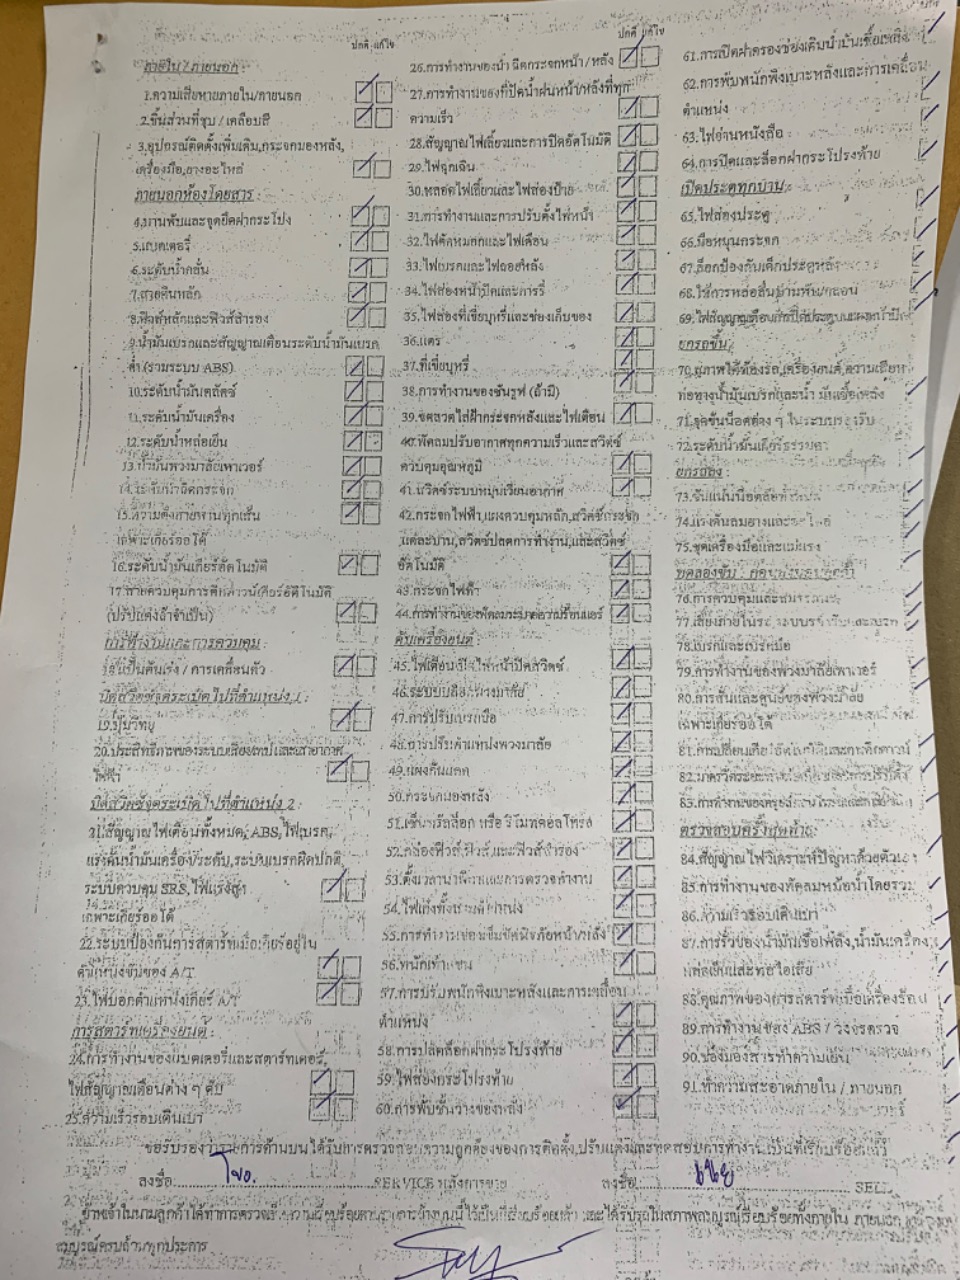 ปกติ แก้ไข
ภายใน / ภายนอก :
1.ความเสียหายภายใน/ภายนอก
2.ชิ้นส่วนที่ชุบ / เคลือบสี
3.อุปกรณ์ติดตั้งเพิ่มเติม,กระจกมองหลัง,
เครื่องมือ,ยางอะไหล่
ภายนอกห้องโดยสาร :
4.บานพับและจุดยึดฝากระโปง
5.แบตเตอรี่
6.ระดับน้ำกลั่น
7.สายดินหลัก
8.ฟิวส์หลักและฟิวส์สำรอง
9.น้ำมันเบรกและสัญญาณเตือนระดับน้ำมันเบรค
ต่ำ (รวมระบบ ABS)
10.ระดับน้ำมันคลัตช์
11.ระดับน้ำมันเครื่อง
12.ระดับน้ำหล่อเย็น
13.น้ำมันพวงมาลัยเพาเวอร์
14.ระดับน้ำฉีดกระจก
15.ความตึงสายพานทุกเส้น
เฉพาะเกียร์ออโต้
16.ระดับน้ำมันเกียร์อัตโนมัติ
(ปรับแต่งถ้าจำเป็น)
การทำงานและการควบคุม :
18.แป้นคันเร่ง / การเคลื่อนตัว
บิดสวิตซ์จุดระเบิดไปที่ตำแหน่ง 1 :
19.ปุ่มวิทยุ
20.ประสิทธิภาพของระบบเสียงเทปและเสาอากาศ
ไฟฟ้า
บิดสวิตซ์จุดระเบิดไปที่ตำแหน่ง 2 :
21.สัญญาณไฟเตือนทั้งหมด, ABS,ไฟเบรค,
ระบบควบคุม SRS, ไฟแรงสูง
เฉพาะเกียร์ออโต้
22.ระบบป้องกันการสตาร์ทเมื่อเกียร์อยู่ใน
ตำแหน่งขับของ A/T
23.ไฟบอกตำแหน่งเกียร์ A/T
การสตาร์ทเครื่องยนต์ :
24.การทำงานของแบตเตอรี่และสตาร์ทเตอร์,
ไฟสัญญาณเตือนต่าง ๆ ดับ
25.ความเร็วรอบเดินเบา
ปกติ แก้ไข
26.การทำงานของน้ำ ฉีดกระจกหน้า/หลัง
27.การทำงานของที่ปัดน้ำฝนหน้า/หลังที่ทุก
ความเร็ว
28.สัญญาณไฟเลี้ยวและการปิดอัตโนมัติ
29.ไฟฉุกเฉิน
30.หลอดไฟเลี้ยวและไฟส่องป้าย
31.การทำงานและการปรับตั้งไฟหน้า
32.ไฟตัดหมอกและไฟเตือน
33.ไฟเบรคและไฟถอยหลัง
34.ไฟส่องหน้าปัดและการหรี่
35.ไฟส่องที่เขี่ยบุหรี่และช่องเก็บของ
36.แตร
37.ที่เขี่ยบุหรี่
38.การทำงานของซันรูฟ (ถ้ามี)
39.ขดลวดไล่ฝ้ากระจกหลังและไฟเตือน
40.พัดลมปรับอากาศทุกความเร็วและสวิตซ์
ควบคุมอุณหภูมิ
41.สวิตซ์ระบบหมุนเวียนอากาศ
42.กระจกไฟฟ้า,แผงควบคุมหลัก,สวิตซ์กระจก
แต่ละบาน,สวิตซ์ปลดการทำงาน,และสวิตซ์
อัตโนมัติ
43.กระจกไฟฟ้า
ดับเครื่องยนต์ :
46.ระบบปลดพวงมาลัย
47.การปรับเบรกมือ
48.การปรับตำแหน่งพวงมาลัย
49.แผงกันแดด
50.กระจกมองหลัง
51.เซ็นทรัลล็อก หรือ รีโมทคอลโทรล
52.กล่องฟิวส์,ฟิวส์,และฟิวส์สำรอง
53.ตั้งเวลานาฬิกาและการตรวจทำงาน
54.ไฟเก๋งทั้งสามตำแหน่ง
55.การทำงานของเข็มขัดนิรภัยหน้า/หลัง
56.พนักเท้าแขน
57.การปรับพนักพิงเบาะหลังและการเคลื่อน
ตำแหน่ง
58.การปลดล็อกฝากระโปรงท้าย
59.ไฟส่องกระโปรงท้าย
60.การพับชั้นวางของหลัง
61.การเปิดฝาครอบช่องเติมน้ำมันเชื้อเพลิง
62.การพับพนักพิงเบาะหลังและการเคลื่อน
ตำแหน่ง
63.ไฟอ่านหนังสือ
64.การปิดและล็อกฝากระโปรงท้าย
เปิดประตูทุกบาน :
65.ไฟส่องประตู
66.มือหมุนกระจก
67.ล็อกป้องกันเด็กประตูหลัง
ยกรถขึ้น :
70.สภาพใต้ท้องรถ,เครื่องยนต์,ความเสียหาย
ท่อทางน้ำมันเบรกและน้ำ มันเชื้อเพลิง
72.ระดับน้ำมันเกียร์ธรรมดา
ยกรถลง :
73.ขันแน่นน็อตล้อทั้งหมด
74.แรงดันลมยางและอะไหล่
75.ชุดเครื่องมือและแม่แรง
78.เบรกและเบรคมือ
79.การทำงานของพวงมาลัยเพาเวอร์
80.การสั่นและศูนย์ของพวงมาลัย
เฉพาะเกียร์ออโต้
ตรวจสอบครั้งสุดท้าย :
84.สัญญาณไฟวิเคราะห์ปัญหาด้วยตัวเอง
85.การทำงานของพัดลมหม้อน้ำโดยรวม
86.ความเร็วรอบเดินเบา
87.การรั่วของน้ำมันเชื้อเพลิง,น้ำมันเครื่อง,
หล่อเย็นและท่อไอเสีย
88.คุณภาพของการสตาร์ทเมื่อเครื่องร้อน
89.การทำงานของ ABS / วงจรตรวจ
90.ช่องมองสารทำความเย็น
91.ทำความสะอาดภายใน / ภายนอก
ขอรับรองว่ารายการด้านบนได้รับการตรวจสอบความถูกต้องของการติดตั้ง,ปรับแต่งและทดสอบการทำงานเป็นที่เรียบร้อยแล้ว
ลงชื่อ SERVICE หลังการขาย ลงชื่อ SELL
สมบูรณ์ครบถ้วนทุกประการ